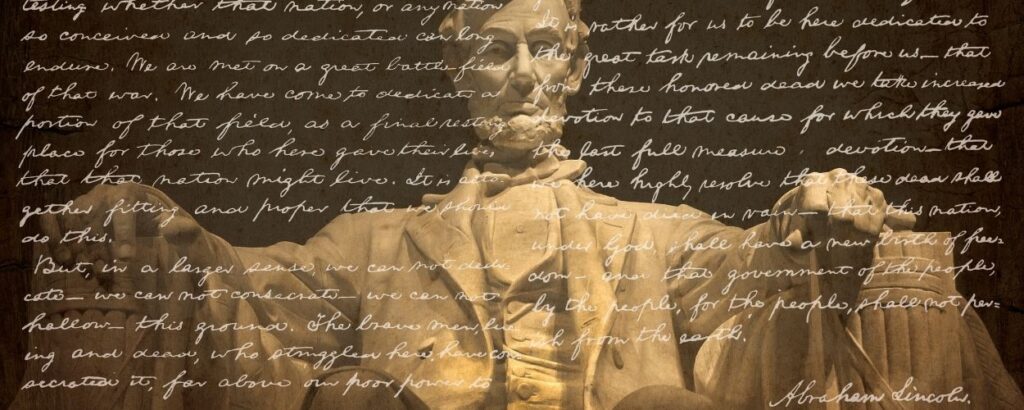 testing whether that nation, or any nation
so conceived and so dedicated can long
endure. We are met on a great battle-field
of that war. We have come to dedicate a
portion of that field, as a final resting
place for those who here gave their
that that nation might live. It is alto-
gether fitting and proper that we should
do this.
But, in a larger sense, we can not dedi-
cate— we can not consecrate— we can not
hallow— this ground. The brave men, liv-
ing and dead, who struggled here, have con-
secrated it, far above our poor power to
It is rather for us to be here dedicated to
the great task remaining before us— that
from these honored dead we take increased
devotion to that cause for which they gave
the last full measure devotion— that
we here highly resolve that these dead shall
not have died in vain— that this nation,
under God, shall have a new birth of free-
dom— and that government of the people,
by the people, for the people, shall not per-
ish from the earth.
Abraham Lincoln.